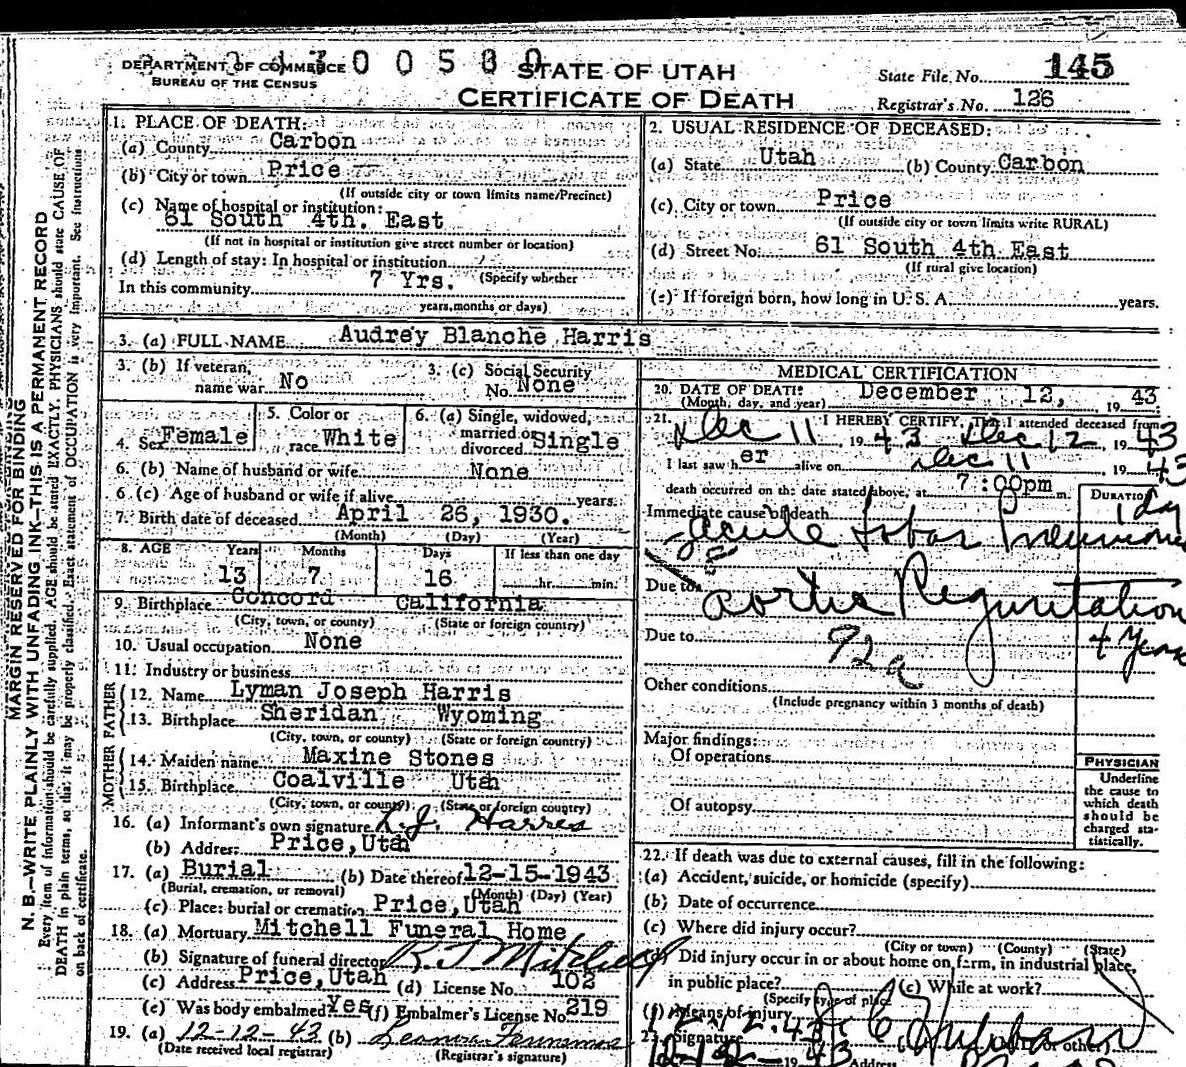 DEPARTMENT OF COMMERCE
BUREAU OF THE CENSUS
STATE OF UTAH
CERTIFICATE OF DEATH
State File No. 145
Registrar's No. 126
MARGIN RESERVED FOR BINDING
N. B.—WRITE PLAINLY WITH UNFADING INK—THIS IS A PERMANENT RECORD
Every item of information should be carefully supplied. AGE should be stated EXACTLY. PHYSICIANS should state CAUSE OF
DEATH in plain terms, so that it may be properly classified. Exact statement of OCCUPATION is very important. See instructions
on back of certificate.
1. PLACE OF DEATH:
(a) County Carbon
(b) City or town Price
(If outside city or town limits name/Precinct)
(c) Name of hospital or institution:
61 South 4th. East
(If not in hospital or institution give street number or location)
(d) Length of stay: In hospital or institution
(Specify whether
In this community 7 Yrs.
years, months or days)
2. USUAL RESIDENCE OF DECEASED:
(a) State Utah (b) County Carbon
(c) City or town Price
(If outside city or town limits write RURAL)
(d) Street No. 61 South 4th East
(If rural give location)
(e) If foreign born, how long in U. S. A. years.
3. (a) FULL NAME Audrey Blanche Harris
3. (b) If veteran, name war No
3. (c) Social Security No. None
4. Sex Female
5. Color or race White
6. (a) Single, widowed, married or divorced Single
6. (b) Name of husband or wife None
6. (c) Age of husband or wife if alive years.
7. Birth date of deceased April 26, 1930.
(Month) (Day) (Year)
8. AGE Years Months Days If less than one day
13 7 16 hr. min.
9. Birthplace Concord California
(City, town, or county) (State or foreign country)
10. Usual occupation None
11. Industry or business
FATHER
12. Name Lyman Joseph Harris
13. Birthplace Sheridan Wyoming
(City, town, or county) (State or foreign country)
MOTHER
14. Maiden name Maxine Stones
15. Birthplace Coalville Utah
(City, town, or county) (State or foreign country)
16. (a) Informant's own signature L.J. Harris
(b) Address Price, Utah
17. (a) Burial (b) Date thereof 12-15-1943
(Burial, cremation, or removal) (Month) (Day) (Year)
(c) Place: burial or cremation Price, Utah
18. (a) Mortuary Mitchell Funeral Home
(b) Signature of funeral director R.J. Mitchell
(c) Address Price, Utah (d) License No. 102
(e) Was body embalmed Yes (f) Embalmer's License No. 219
19. (a) 12-12-43 (b) Leonora
(Date received local registrar) (Registrar's signature)
MEDICAL CERTIFICATION
20. DATE OF DEATH: December 12, 1943
(Month, day, and year)
21. I HEREBY CERTIFY, That I attended deceased from
Dec 11 1943 Dec 12 1943
I last saw her alive on Dec 11, 1943
death occurred on the date stated above, at 7:00pm m.
DURATION
Immediate cause of death 1 day
acute Lobar Pneumonia
Due to Aortic Reguritation
4 Years
Due to 92a
Other conditions
(Include pregnancy within 3 months of death)
Major findings:
Of operations
Of autopsy
PHYSICIAN
Underline
the cause to
which death
should be
charged sta-
tistically.
22. If death was due to external causes, fill in the following:
(a) Accident, suicide, or homicide (specify)
(b) Date of occurrence
(c) Where did injury occur?
(City or town) (County) (State)
Did injury occur in or about home on farm, in industrial place,
in public place? (e) While at work?
(Specify type of place)
(f) Means of injury
23. Signature J C Hubbard
Address